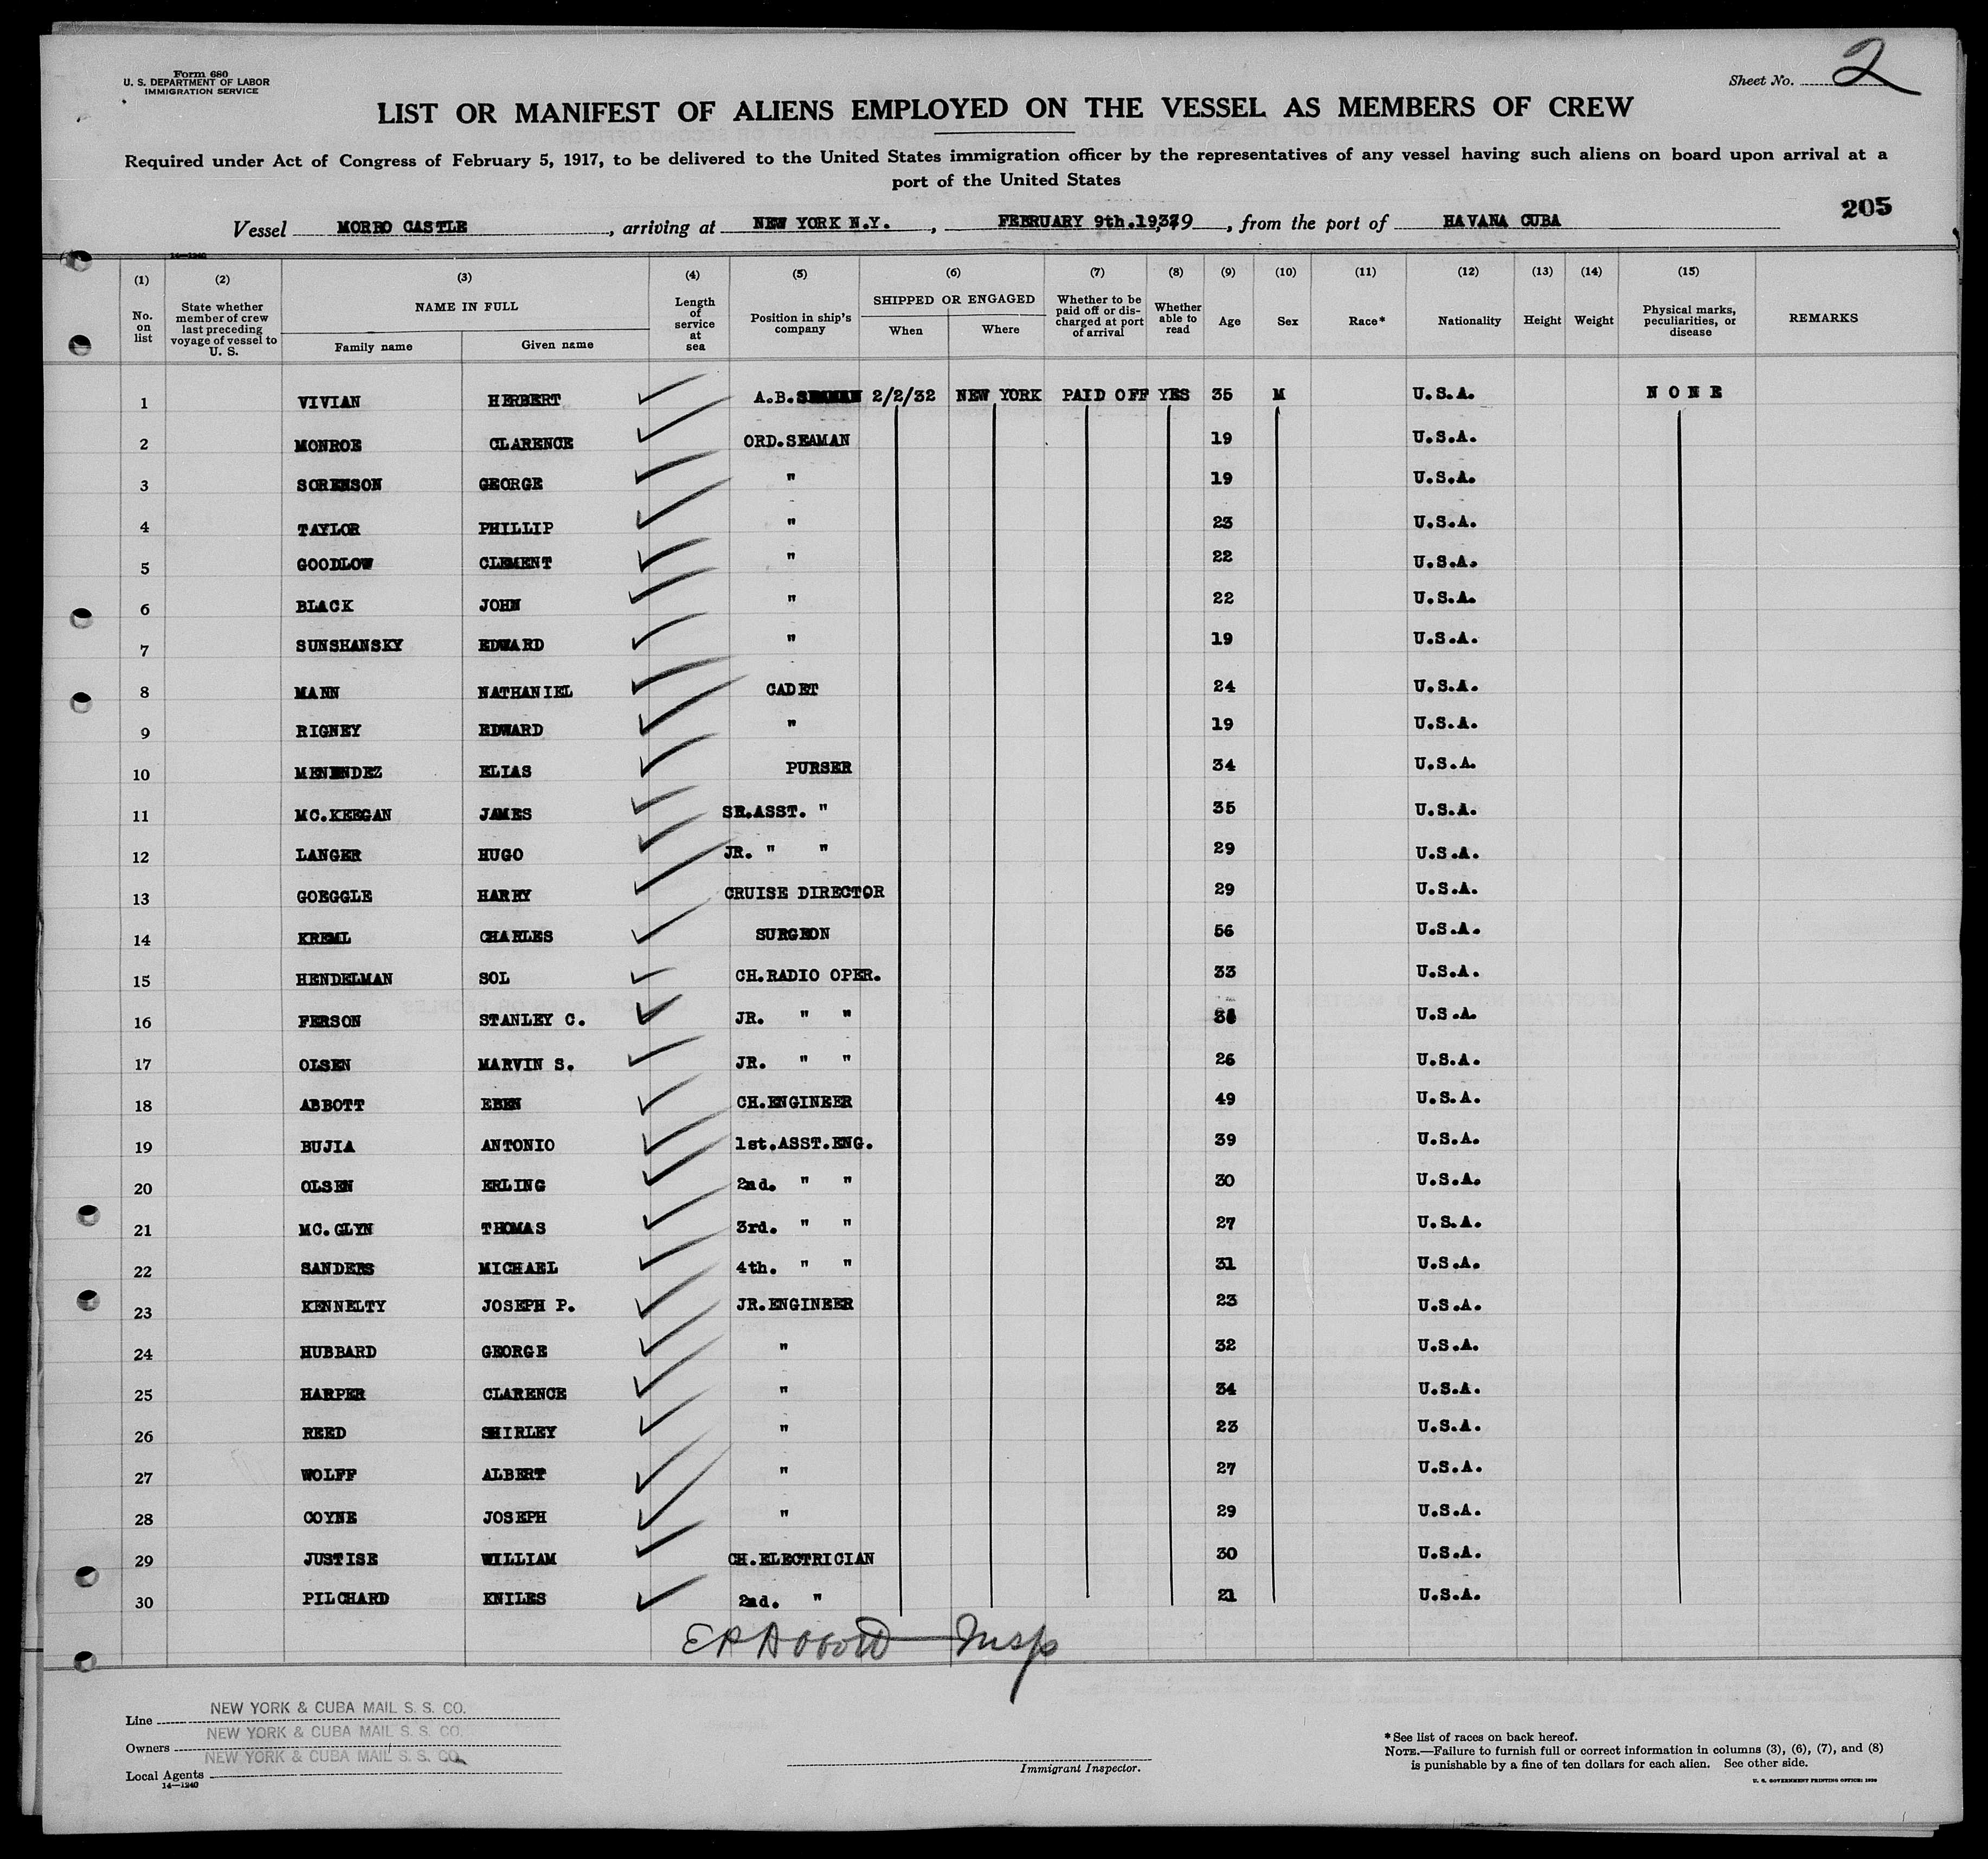 Form 680
U. S. DEPARTMENT OF LABOR
IMMIGRATION SERVICE
Sheet No. 2
LIST OR MANIFEST OF ALIENS EMPLOYED ON THE VESSEL AS MEMBERS OF CREW
Required under Act of Congress of February 5, 1917, to be delivered to the United States immigration officer by the representatives of any vessel having such aliens on board upon arrival at a
port of the United States
205
Vessel MORRO CASTLE, arriving at NEW YORK N.Y., FEBRUARY 9th. , from the port of HAVANA CUBA
14—1240
(1) (2) (3) (4) (5) (6) (7) (8) (9) (10) (11) (12) (13) (14) (15)
No. on list State whether member of crew last preceding voyage of vessel to U. S. NAME IN FULL Family name Given name Length of service at sea Position in ship's company SHIPPED OR ENGAGED When Where Whether to be paid off or discharged at port of arrival Whether able to read Age Sex Race* Nationality Height Weight Physical marks, peculiarities, or disease REMARKS
1 VIVIAN HERBERT A.B. 2/2/32 NEW YORK PAID OFF YES 35 M U.S.A. NONE
2 MONROE CLARENCE ORD.SEAMAN 19 U.S.A.
3 SORENSON GEORGE " 19 U.S.A.
4 TAYLOR PHILLIP " 23 U.S.A.
5 GOODLOW CLEMENT " 22 U.S.A.
6 BLACK JOHN " 22 U.S.A.
7 SUNSHANSKY EDWARD " 19 U.S.A.
8 MANN NATHANIEL CADET 24 U.S.A.
9 RIGNEY EDWARD " 19 U.S.A.
10 MENENDEZ ELIAS PURSER 34 U.S.A.
11 MC.KEEGAN JAMES SR.ASST. " 35 U.S.A.
12 LANGER HUGO JR. " " 29 U.S.A.
13 GOEGGLE HARRY CRUISE DIRECTOR 29 U.S.A.
14 KREML CHARLES SURGEON 56 U.S.A.
15 HENDELMAN SOL CH.RADIO OPER. 33 U.S.A.
16 FERSON STANLEY C. JR. " " U.S.A.
17 OLSEN MARVIN S. JR. " " 26 U.S.A.
18 ABBOTT EBEN CH.ENGINEER 49 U.S.A.
19 BUJIA ANTONIO 1st.ASST.ENG. 39 U.S.A.
20 OLSEN ERLING 2nd. " " 30 U.S.A.
21 MC.GLYN THOMAS 3rd. " " 27 U.S.A.
22 SANDERS MICHAEL 4th. " " 31 U.S.A.
23 KENNELTY JOSEPH P. JR.ENGINEER 23 U.S.A.
24 HUBBARD GEORGE " 32 U.S.A.
25 HARPER CLARENCE " 34 U.S.A.
26 REED SHIRLEY " 23 U.S.A.
27 WOLFF ALBERT " 27 U.S.A.
28 COYNE JOSEPH " 29 U.S.A.
29 JUSTISE WILLIAM CH.ELECTRICIAN 30 U.S.A.
30 PILCHARD KNILES 2nd. " 21 U.S.A.
Insp
Line NEW YORK & CUBA MAIL S. S. CO.
Owners NEW YORK & CUBA MAIL S. S. CO.
Local Agents NEW YORK & CUBA MAIL S. S. CO.
14—1240
Immigrant Inspector.
* See list of races on back hereof.
NOTE.—Failure to furnish full or correct information in columns (3), (6), (7), and (8)
is punishable by a fine of ten dollars for each alien. See other side.